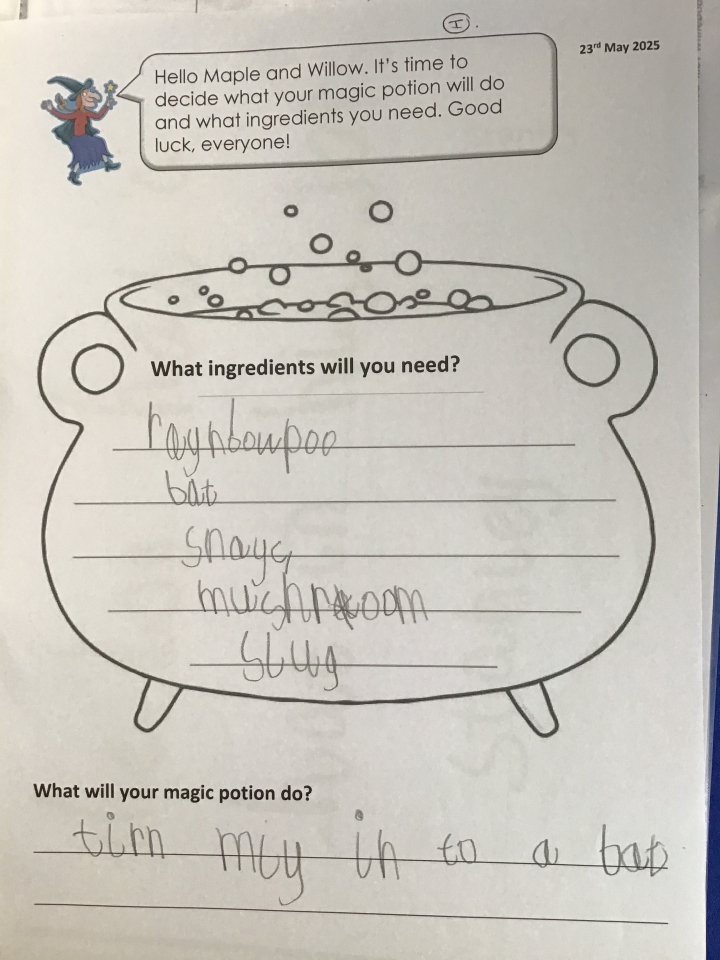 I.
23rd May 2025
Hello Maple and Willow. It's time to
decide what your magic potion will do
and what ingredients you need. Good
luck, everyone!
What ingredients will you need?
raynbowpoo
bat
snayc
mushroom
slug
What will your magic potion do?
tirn mey in to a bat